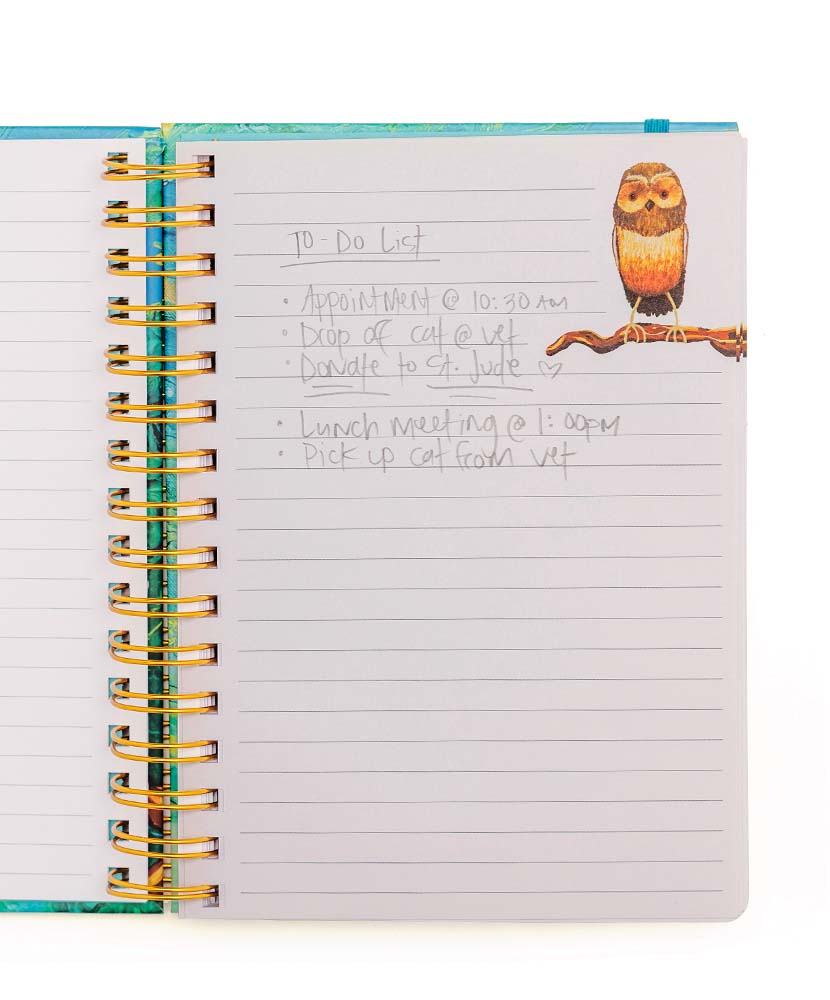 To-Do List
• Appointment @ 10:30 AM
• Drop of cat @ vet
• Donate to St. Jude ♡
• Lunch meeting @ 1:00PM
• Pick up cat from vet